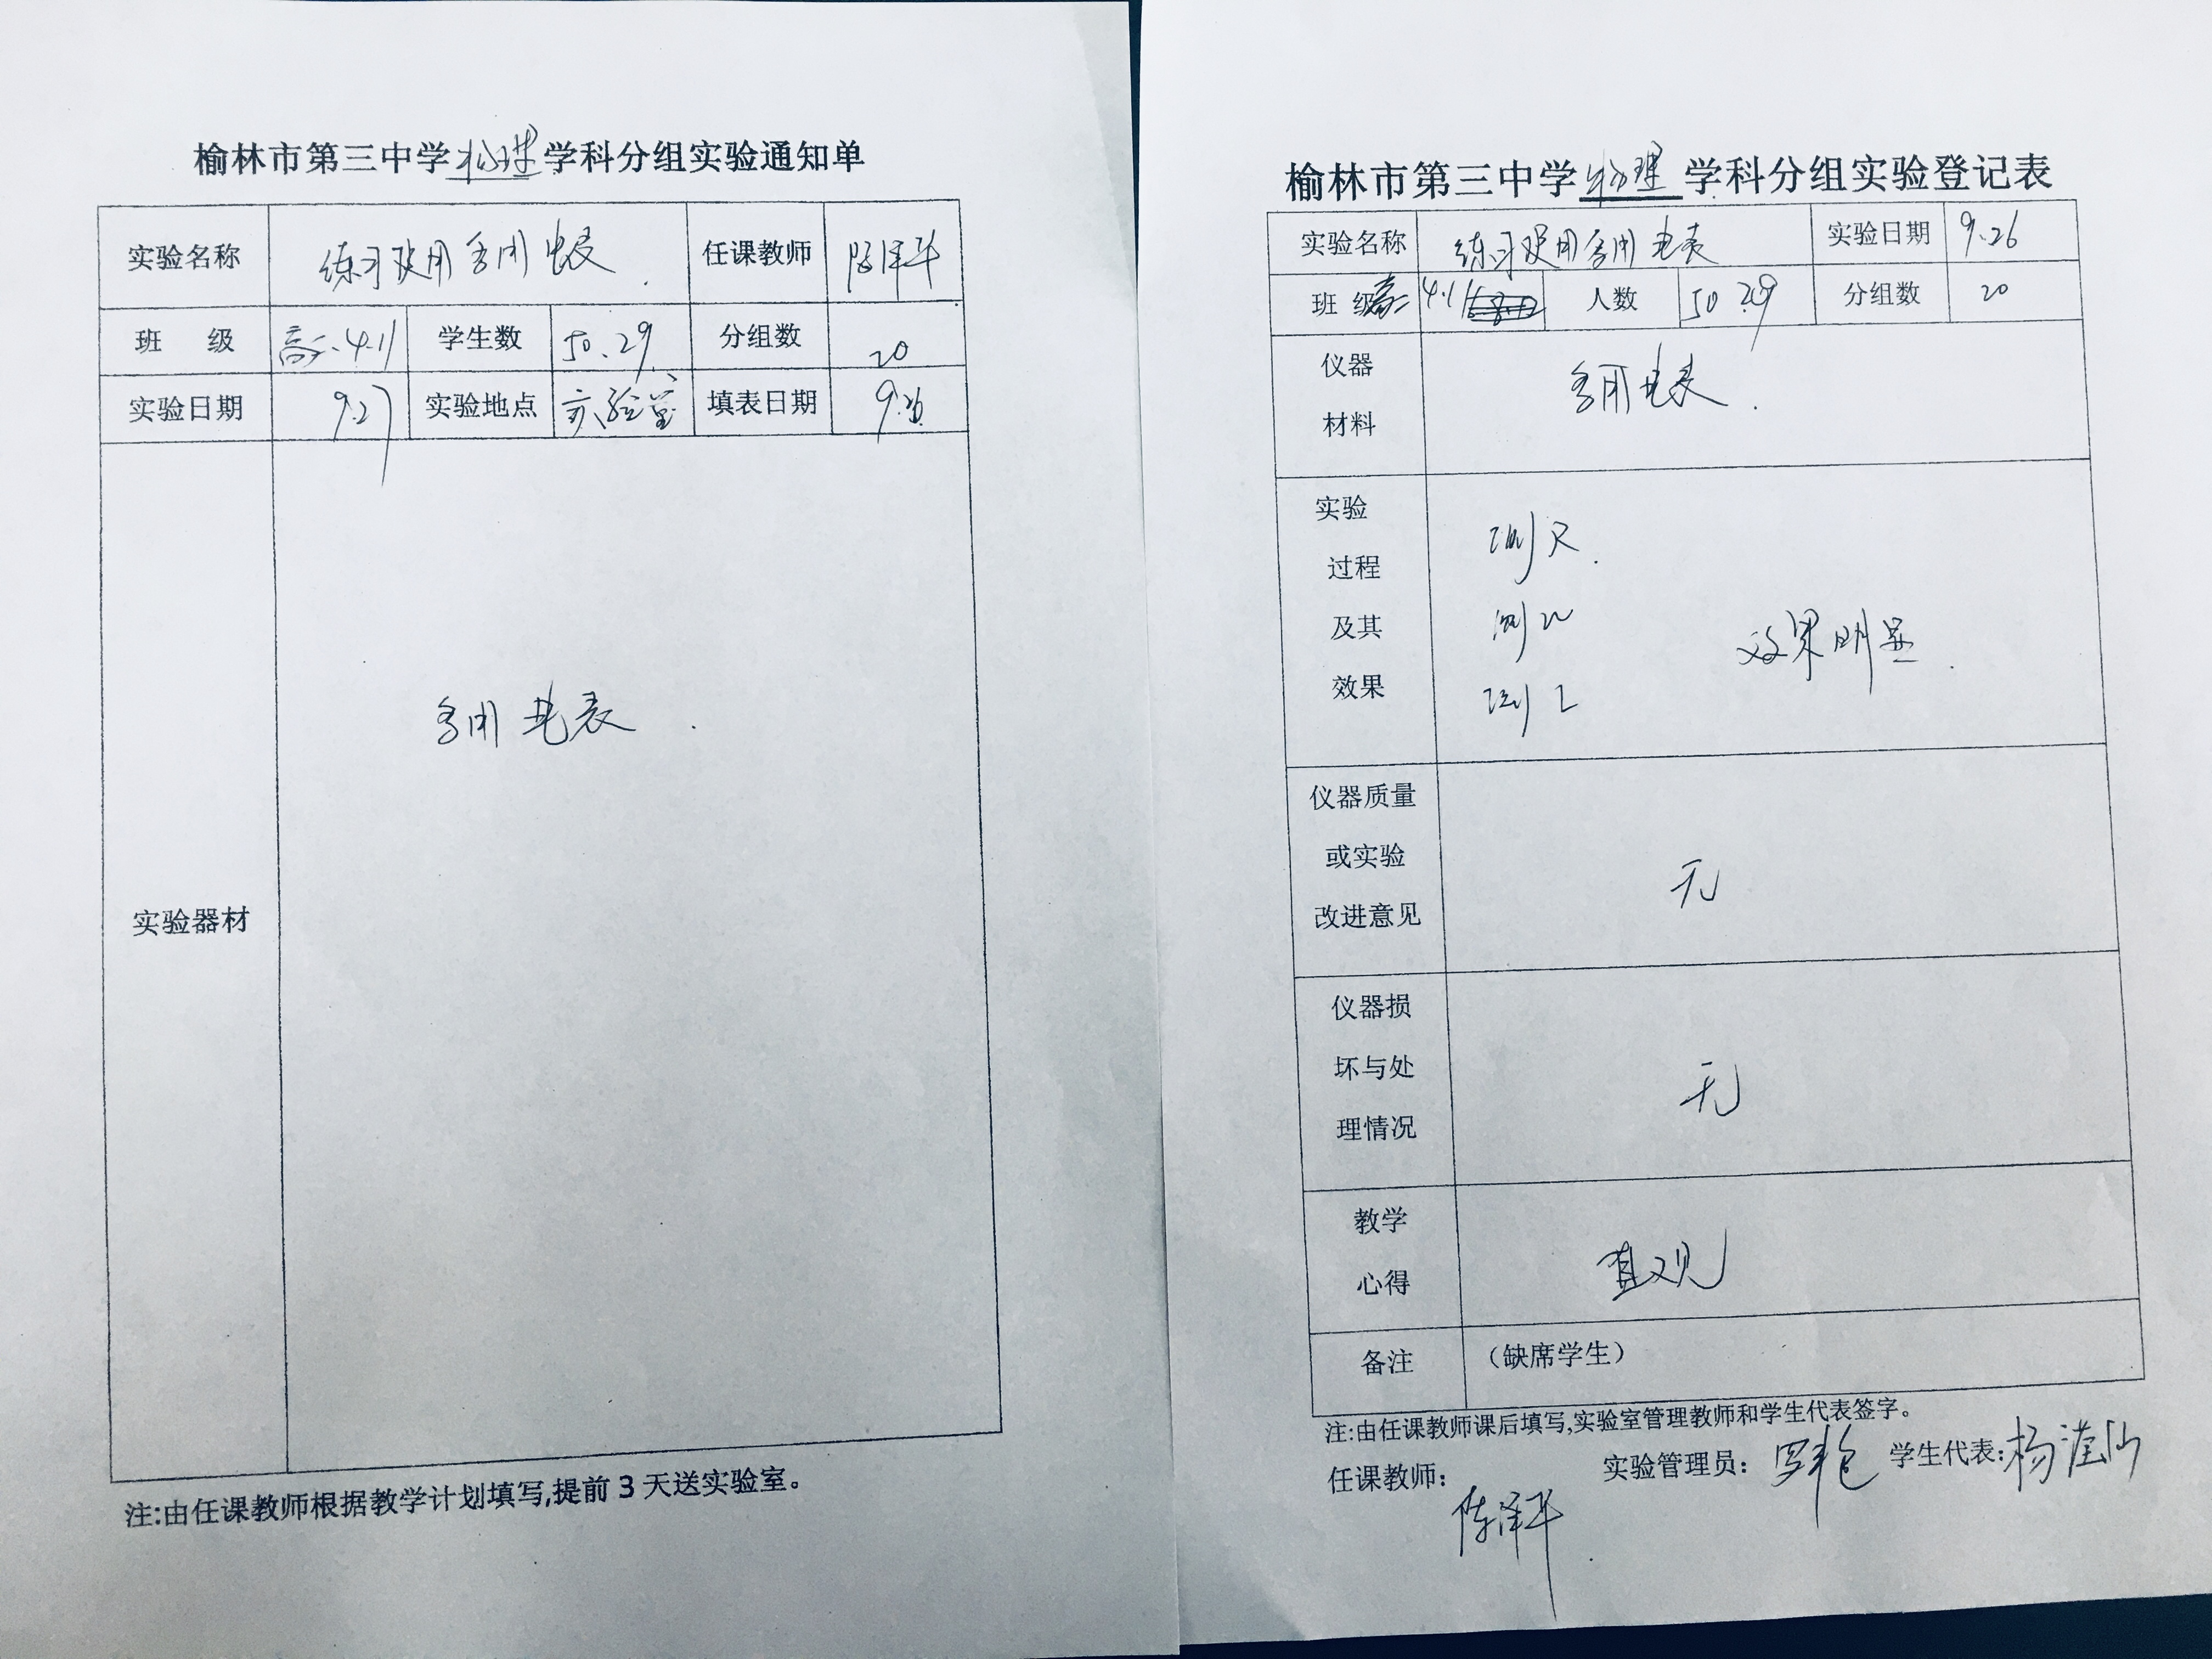 榆林市第三中学物理学科分组实验通知单
实验名称 练习使用多用电表 任课教师 陈泽平
班 级 高二.4.11 学生数 50.29 分组数 20
实验日期 9.27 实验地点 实验室 填表日期
实验器材 多用电表
注:由任课教师根据教学计划填写,提前3天送实验室。
榆林市第三中学物理学科分组实验登记表
实验名称 练习使用多用电表 实验日期 9.26
班 级 高二 4.11 人数 50.29 分组数 20
仪器
材料
多用电表
实验
过程
及其
效果
测R
测U
测I
效果明显
仪器质量
或实验
改进意见
无
仪器损
坏与处
理情况
无
教学
心得
直观
备注 (缺席学生)
注:由任课教师课后填写,实验室管理教师和学生代表签字。
任课教师: 陈泽平 实验管理员: 学生代表: